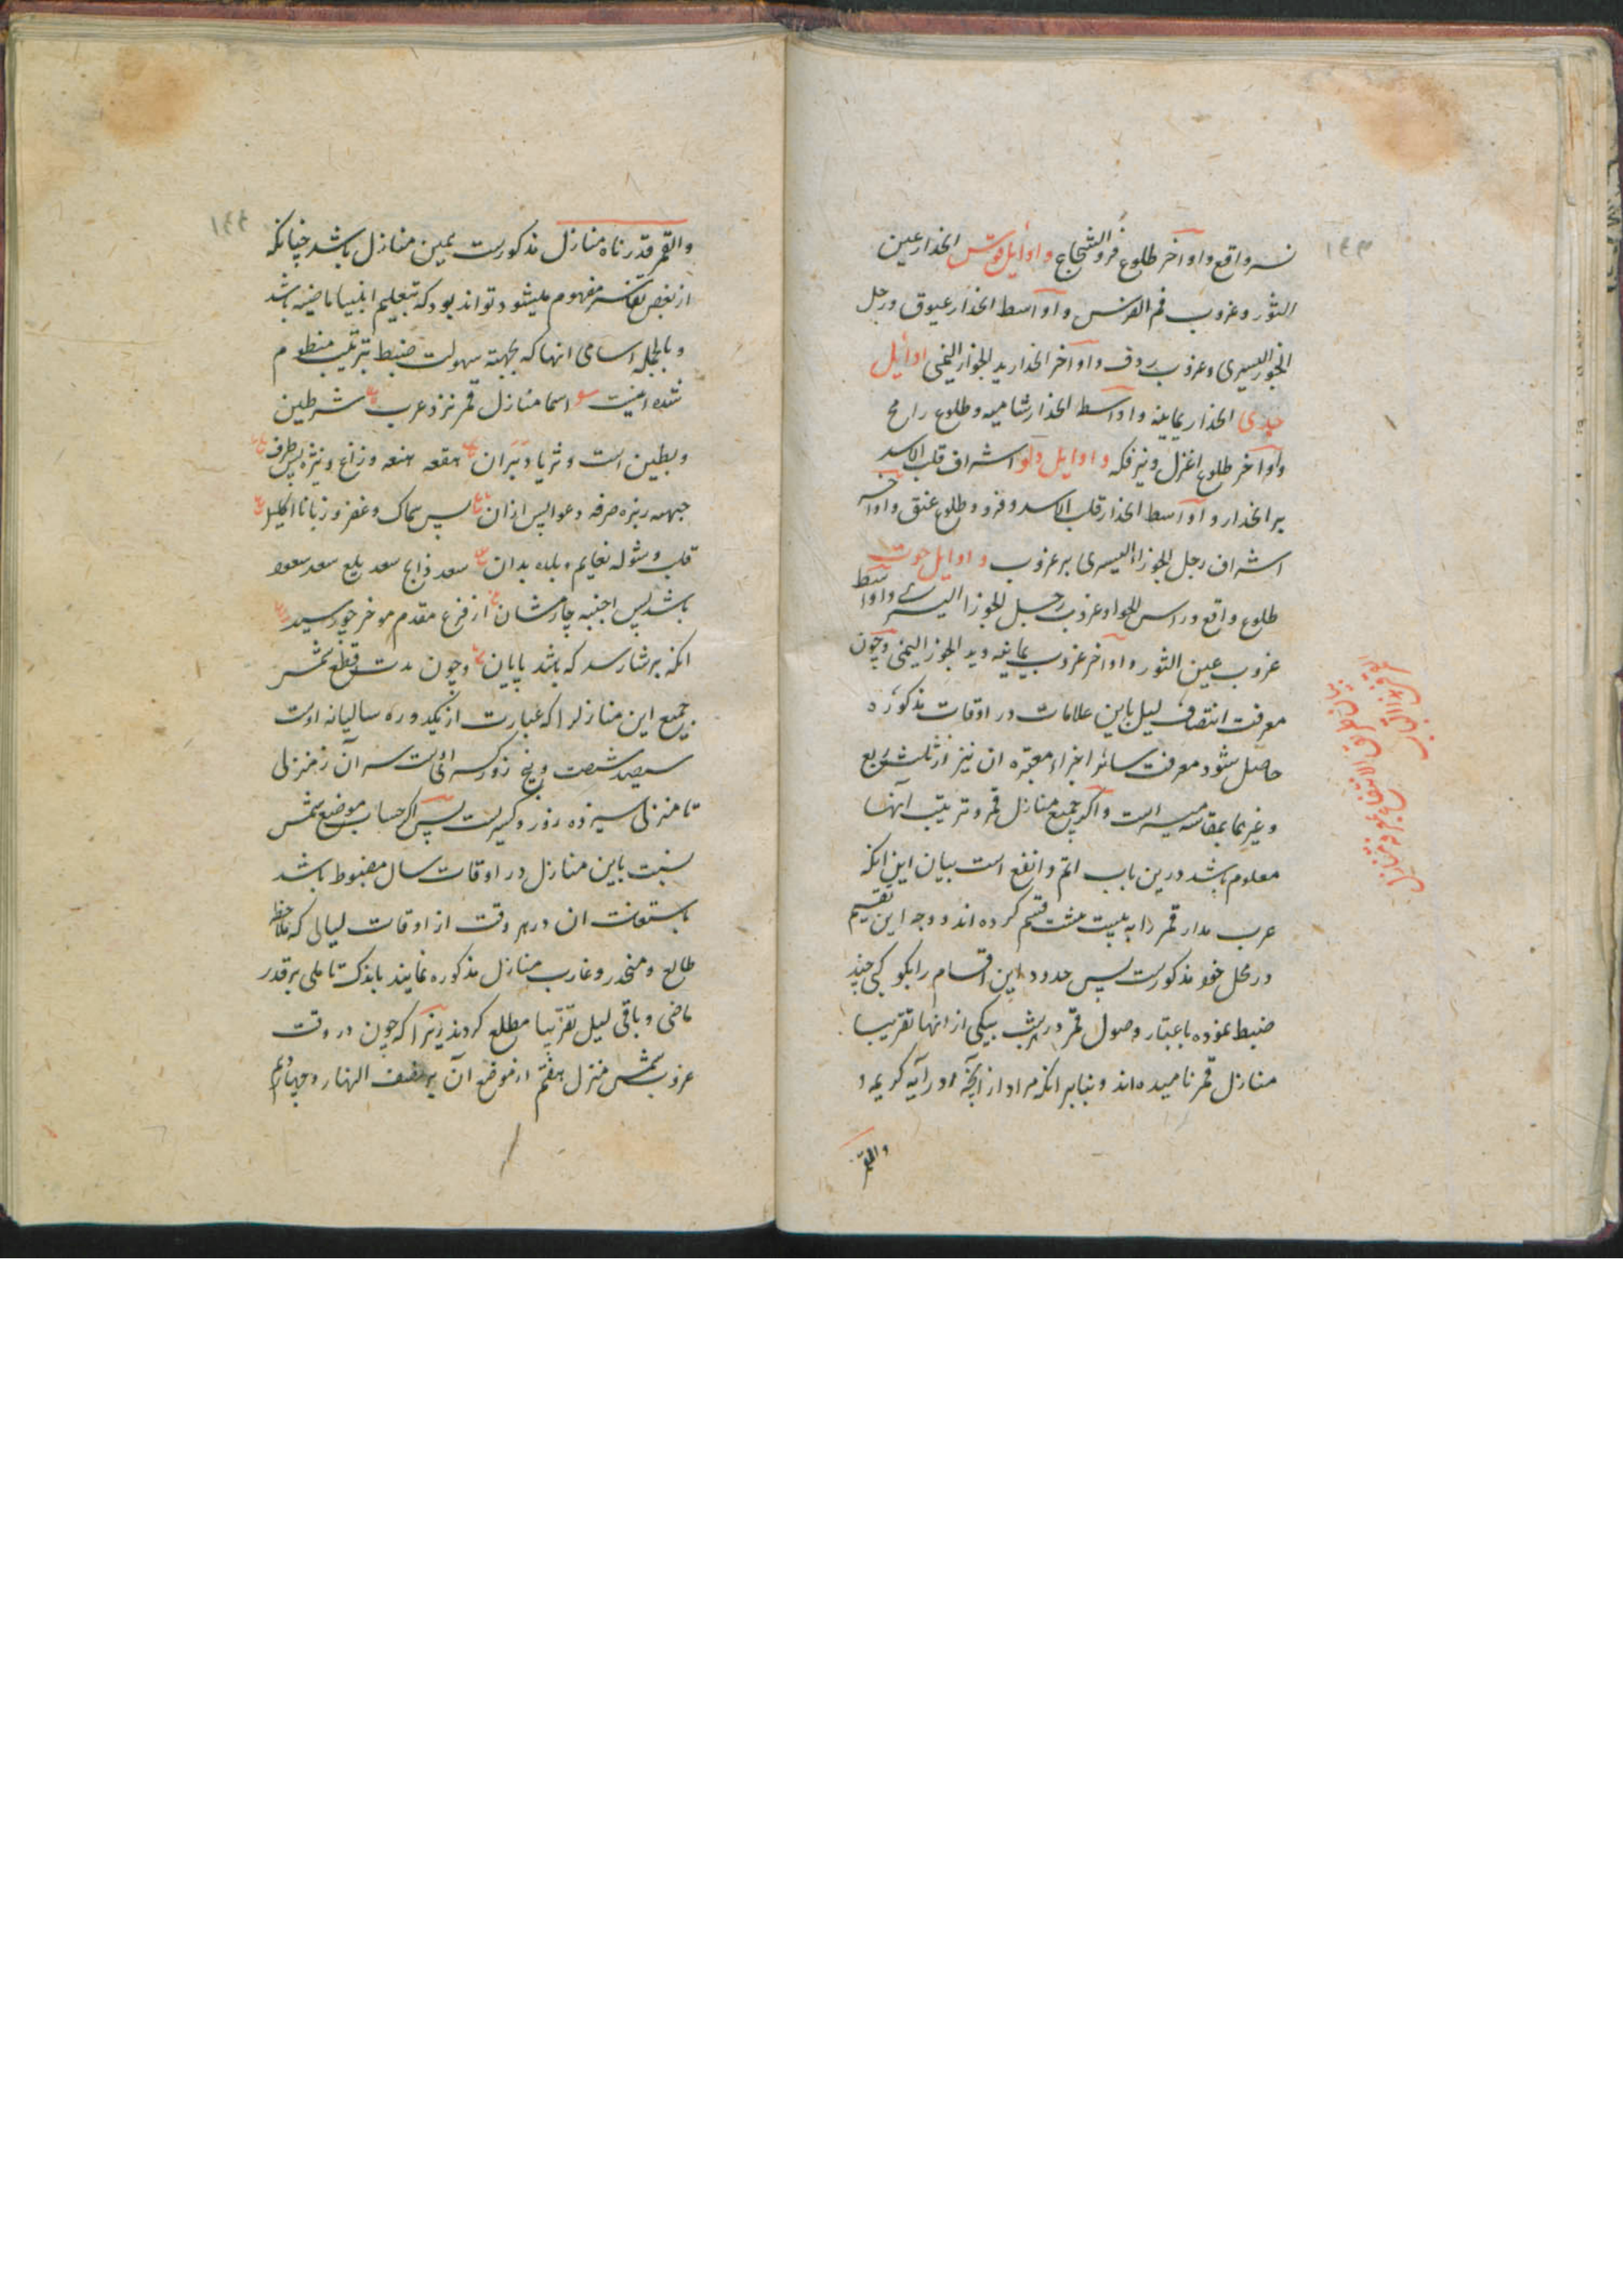 ۱۴۳
نسر واقع و اواخر طلوع فرد الشجاع و اوایل قوس انحدار عین
الثور و غروب فم الفرس و اواسط انحدار عیوق و رجل
الجوزا الیسری و غروب ردف و اواخر انحدار ید الجوزا الیمنی اوایل
جدی انحدار یمانیه و اواسط انحدار شامیه و طلوع رامح
و اواخر طلوع اعزل و نیر فکه و اوایل دلو اشراف قلب الاسد
بر انحدار و اواسط انحدار قلب الاسد و فرد و طلوع عنق و اواخر
اشراف رجل الجوزا الیسری بر غروب و اوایل حوت
طلوع واقع و راس الحوا و غروب رجل الجوزا الیسری و اواسط
غروب عین الثور و اواخر غروب یمانیه و ید الجوزا الیمنی و چون
معرفت انتصاف لیل باین علامات در اوقات مذکوره
حاصل شود معرفت سائر اجزاء معتبره ان نیز از ثلث و ربع
و غیرهما بمقایسه میسر است و اگر جمیع منازل قمر و ترتیب آنها
معلوم باشد درین باب اتم و انفع است بیان این انکه
عرب مدار قمر را به بیست هشت قسم کرده اند و وجه این تقسیم
در محل خود مذکورست پس حدود این اقسام را بکوکبی چند
ضبط نموده باعتبار وصول قمر در هر شب بیکی از انها تقریبا
منازل قمر نامیده اند و بنابر انکه مراد از آنچه در آیه کریمه و
والقمر
۱۴۴
والقمر قدرناه منازل مذکورست همین منازل باشد چنانکه
از بعض تفاسیر مفهوم میشود تواند بود که بتعلیم انبیا ماضیه باشد
و بالجمله اسامی انها که بجهة سهولت ضبط بترتیب منظوم
شده اینست اسما منازل قمر نزد عرب شرطین
و بطین است و ثریا دبران هقعه هنعه و ذراع و نثره پس طرف
جبهه زبره صرفه و عوا پس ازان پس سماک و غفر و زبانا اکلیل
قلب و شوله نعایم و بلده بدان سعد ذابح سعد بلع سعد سعود
باشد پس اخبیه چارمشان از فرغ مقدم موخر چو رسید
انکه برشا رسد که باشد پایان و چون مدت قطع شمس
جمیع این منازلرا که عبارت از یکدوره سالیانه اوست
سیصد شصت و پنج روز کسرایست سیر آن ز منزلی
تا منزلی سیزده روز و کسریست پس اگر حساب موضع شمس
نسبت باین منازل در اوقات سال مضبوط باشد
باستعانت ان در هر وقت از اوقات لیالی که ملاحظه
طالع و منحدر و غارب منازل مذکوره نمایند باندک تاملی بر قدر
ماضی و باقی لیل تقریبا مطلع کردند زیرا که چون در وقت
غروب شمس منزل هفتم از موضع آن بر نصف النهار و چهاردهم